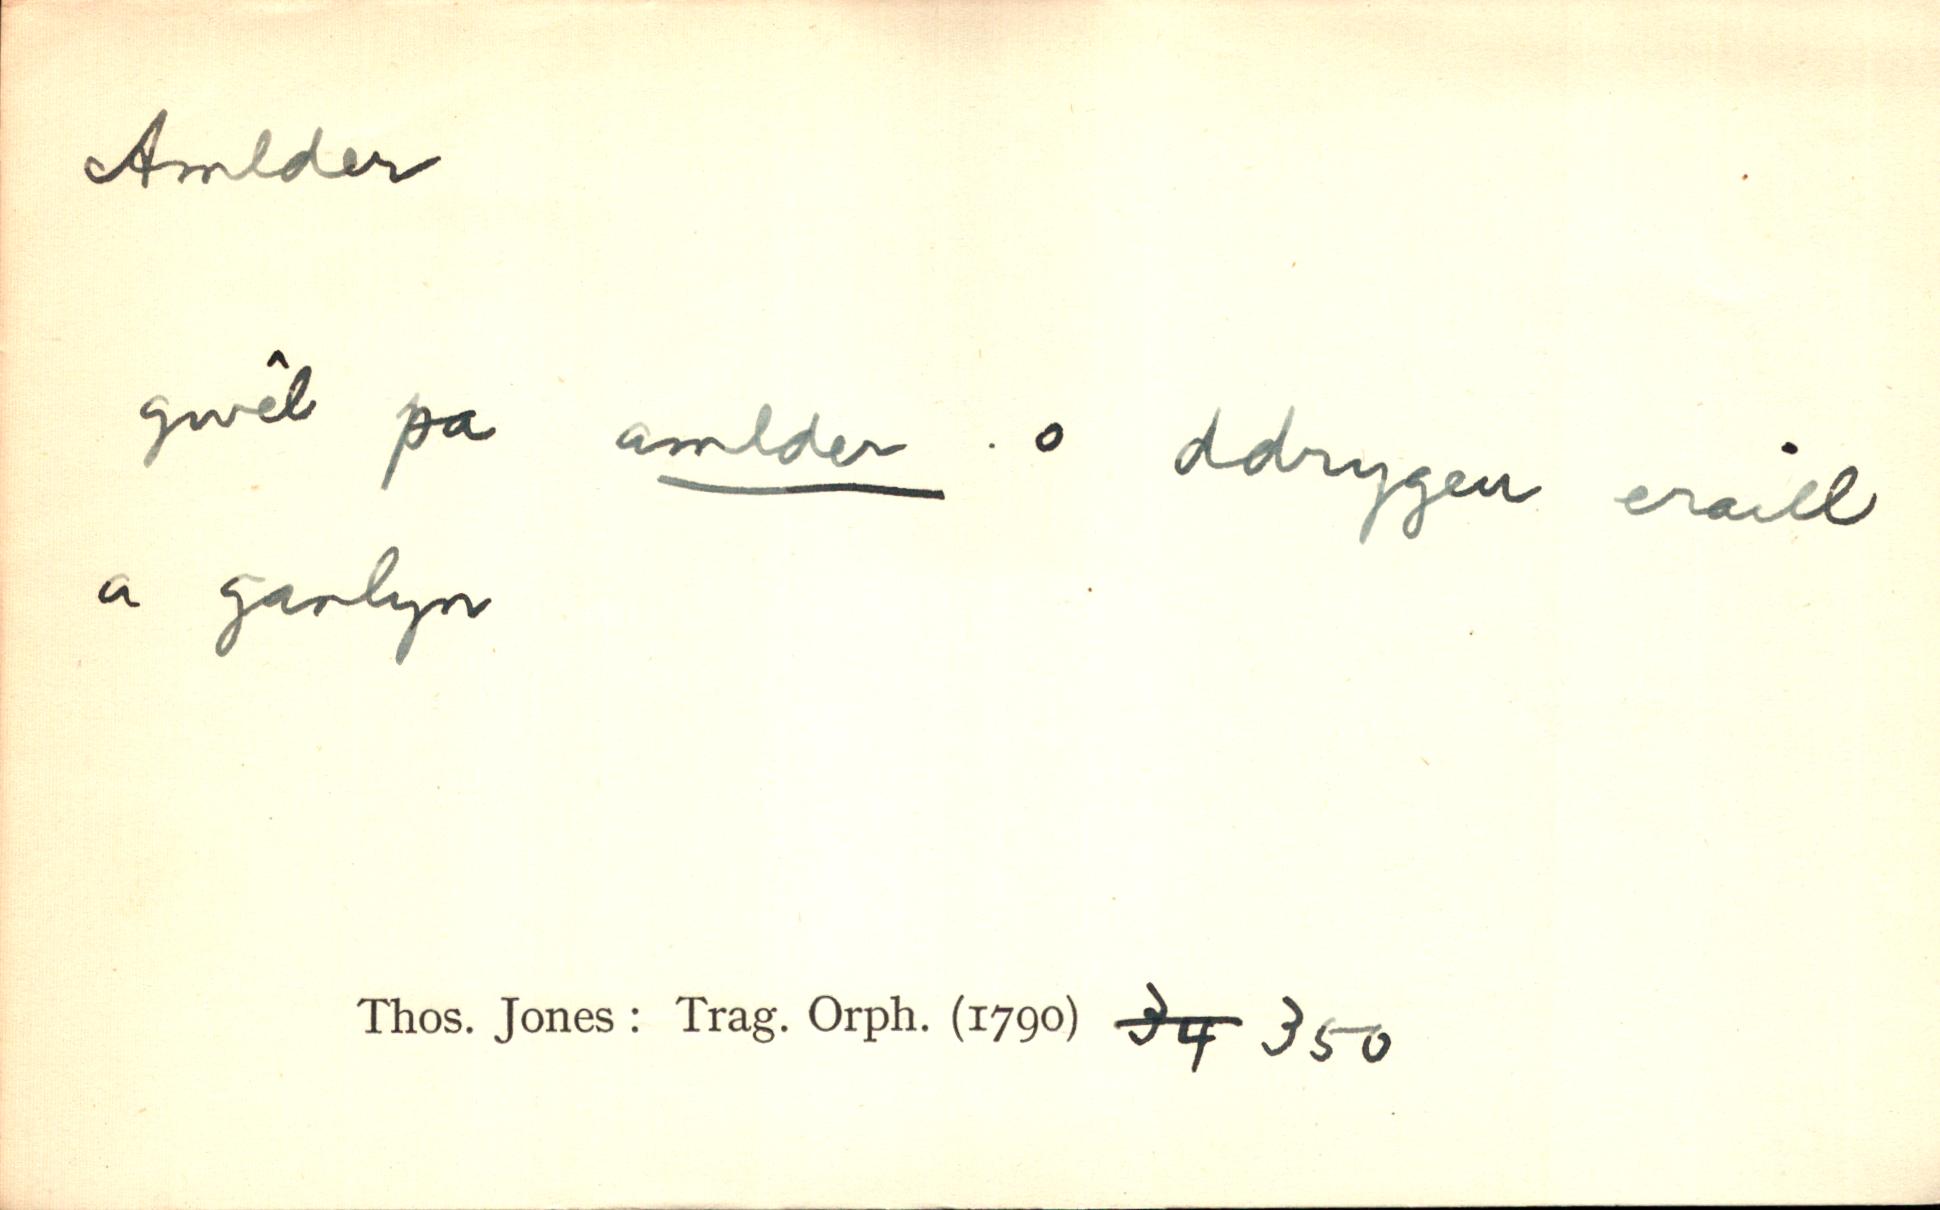 Amlder
gwêl pa amlder o ddrygeu eraill
a ganlyn
Thos. Jones: Trag. Orph. (1790) 34 350